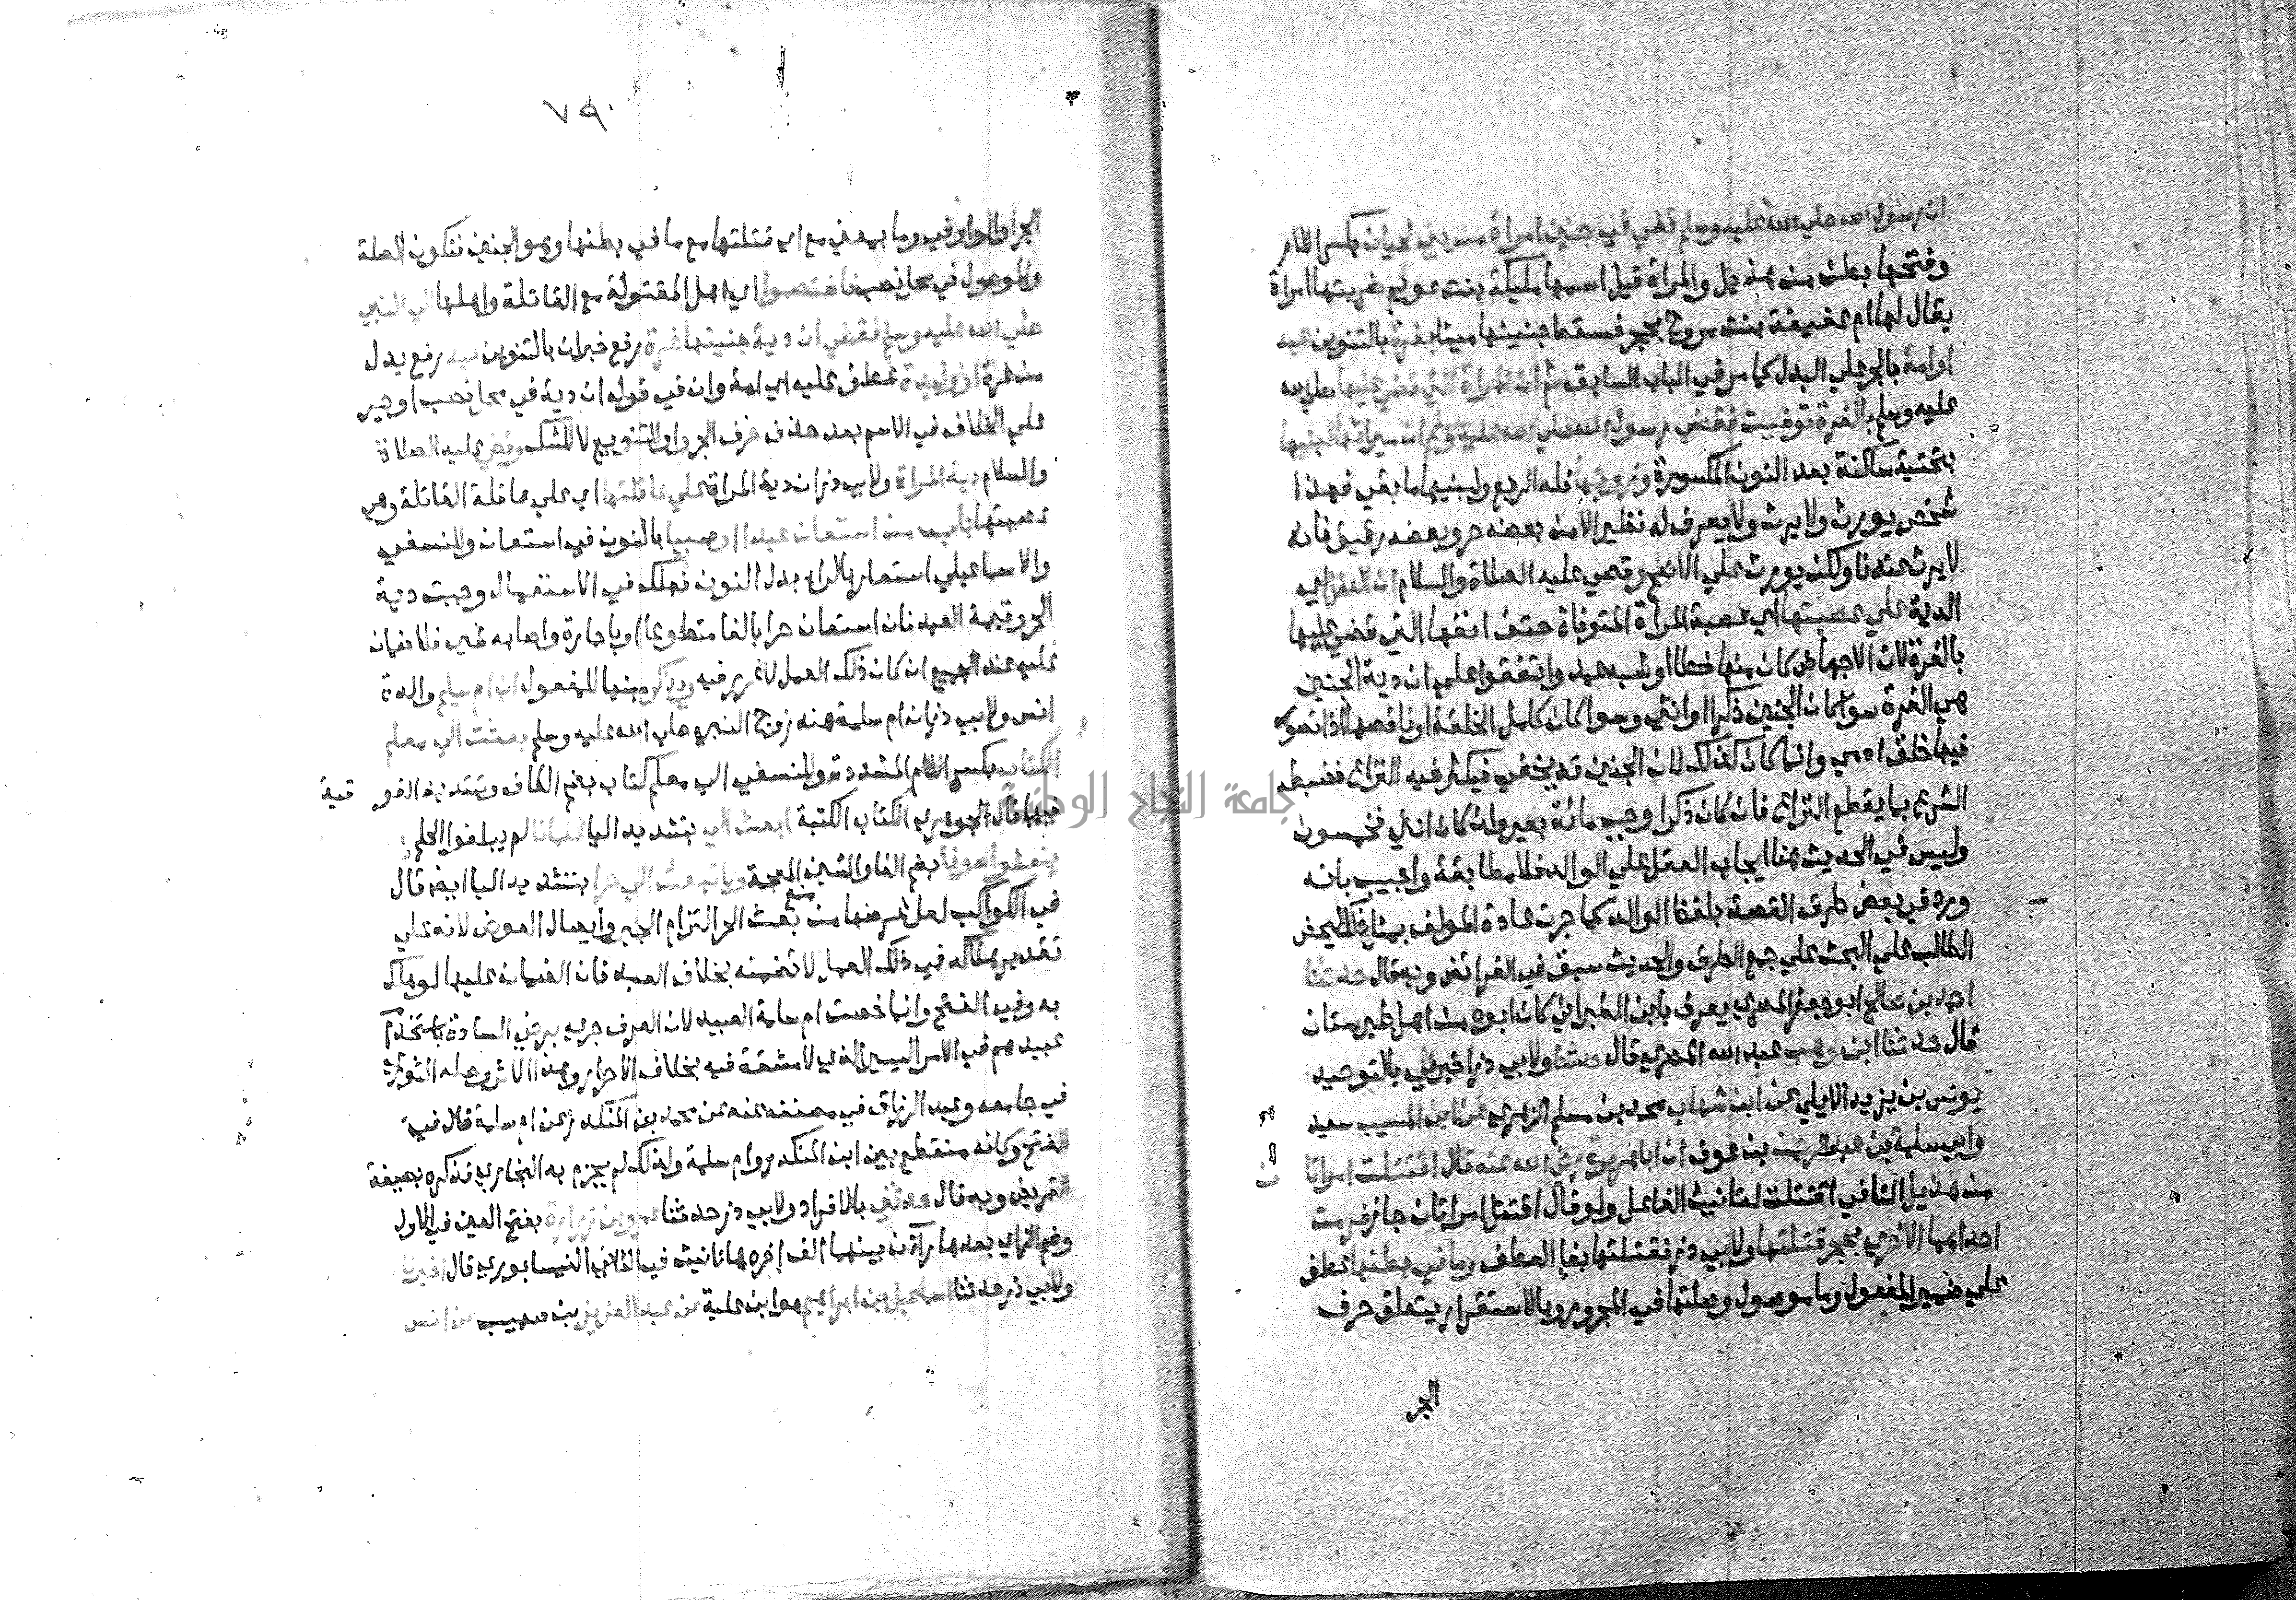 ان رسول الله صلي الله عليه وسلم قضي في جنين امراة من بني لحيان بكسر اللام
وفتحها بطن من هذيل والمراة قيل اسمها مليكة بنت عويم ضربتها امراة
يقال لها ام عفيفة بنت مروح بحجر فسقط جنينها ميتا بغرة بالتنوين عبد
اوامة بالجر علي البدل كما مر في الباب السابق ثم ان المراة التي قضي عليها صلي الله
عليه وسلم بالغرة توفيت فقضي رسول الله صلي الله عليه وسلم ان ميراثها لبنيها
بتحتية ساكنة بعد النون المكسورة وزوجها فله الربع ولبنيها ما بقي فهذا
شخص يورث ولا يرث ولا يعرف له نظير الا من بعضه حر وبعضه رقيق فانه
لا يرث عندنا ولكن يورث علي الاصح وقضي عليه الصلاة والسلام ان العقل اي
الدية علي عصبتها اي عصبة المراة المتوفاة حتف انفها التي قضي عليها
بالغرة لان الاجهاض كان منها خطا او شبه عمد واتفقوا علي ان دية الجنين
هي الغرة سوا كان الجنين ذكرا او انثي وسوا كان كامل الخلقة او ناقصها اذا تصور
فيها خلق ادمي وانما كان كذلك لان الجنين قد يخفي فيكثر فيه النزاع فضبطه
الشرع بما يقطع النزاع فان كان ذكرا وجب مائة بعير وان كان انثي فخمسون
وليس في الحديث هنا ايجاب العقل علي الوالد فلا مطابقة واجيب بانه
ورد في بعض طرق القصة بلفظ الوالد كما جرت عادة المولف بمثل ذلك ليحض
الطالب علي البحث علي جمع الطرق والحديث سبق في الفرائض وبه قال حدثنا
احمد بن صالح ابو جعفر المصري يعرف بابن الطبراني كان ابوه من اهل طبرستان
قال حدثنا ابن وهب عبد الله المصري قال حدثنا ولابي ذر اخبرني بالتوحيد
يونس بن يزيد الايلي عن ابن شهاب محمد بن مسلم الزهري عن ابن المسيب سعيد
وابي سلمة بن عبد الرحمن بن عوف ان ابا هريرة رضي الله عنه قال اقتتلت امراتان
من هذيل التا في اقتتلت لتانيث الفاعل ولو قال اقتتل امراتان جاز فرمت
احداهما الاخري بحجر قتلتها ولابي ذر فقتلتها بفا العطف وما في بطنها عطف
علي ضمير المفعول وما موصول وصلتها في المجرور وبالاستقرار يتعلق حرف
الجر
٧٩٠
الجر او الواو في وما بمعني مع اي قتلتها مع ما في بطنها وهو الجنين فتكون الصلة
والموصول في محل نصب فاختصموا اي اهل المقتولة مع القاتلة واهلها الي النبي
صلي الله عليه وسلم فقضي ان دية جنينها غرة رفع خبر ان بالتنوين عبد رفع بدل
من غرة او وليدة عطف عليه اي امة وان في قوله ان دية في محل نصب او جر
علي الخلاف في الاسم بعد حذف حرف الجر او للتنويع لا للشك وقضي عليه الصلاة
والسلام دية المراة ولابي ذر ان دية المراة علي عاقلتها اي علي عاقلة القاتلة وهي
عصبتها باب من استعان عبدا او صبيا بالنون في استعان وللنسفي
والاسماعيلي استعار بالراء بدل النون فهلك في الاستعمال وجبت دية
الحر وقيمة العبد فان استعان حرا بالغا متطوعا او باجارة واصابه شي فلا ضمان
عليه عند الجميع ان كان ذلك العمل لا غرر فيه ويذكر مبنيا للمفعول ان ام سليم والدة
انس ولابي ذر ان ام سلمة هند زوج النبي صلي الله عليه وسلم بعثت الي معلم
الكتاب بكسر اللام المشددة وللنسفي الي معلم كتاب بضم الكاف وتشديد الفو قية
فيهما قال الجوهري الكتاب الكتبة ابعث الي بتشديد اليا غلمانا لم يبلغوا الحلم
ينفشوا صوفا بضم الفا والشين المعجمة ولا تبعث الي حرا بتشديد اليا ايضا قال
في الكواكب لعل غرضها من منع بعث الحر التزام الجبر وايصال العوض لانه علي
تقدير هلاكه في ذلك العمل لا تضمنه بخلاف العبد فان الضمان عليها لو هلك
به وفي الفتح وانما خصت ام سلمة العبيد لان العرف جري برضي السادة باستخدام
عبيدهم في الامر اليسير الذي لا مشقة فيه بخلاف الاحرار وهذا الاثر وصله الثوري
في جامعه وعبد الرزاق في مصنفه عنه عن محمد بن المنكدر عن ام سلمة قال في
الفتح وكانه منقطع بين ابن المنكدر وام سلمة ولذلك لم يجزم به البخاري فذكره بصيغة
التمريض وبه قال حدثني بالافراد ولابي ذر حدثنا عمرو بن زرارة بفتح العين في الاول
وضم الزاي بعدها راآن بينهما الف اخره ها تانيث في الثاني النيسابوري قال اخبرنا
ولابي ذر حدثنا اسماعيل بن ابراهيم هو ابن علية عن عبد العزيز بن صهيب عن انس
جامعة النجاح الوطنية